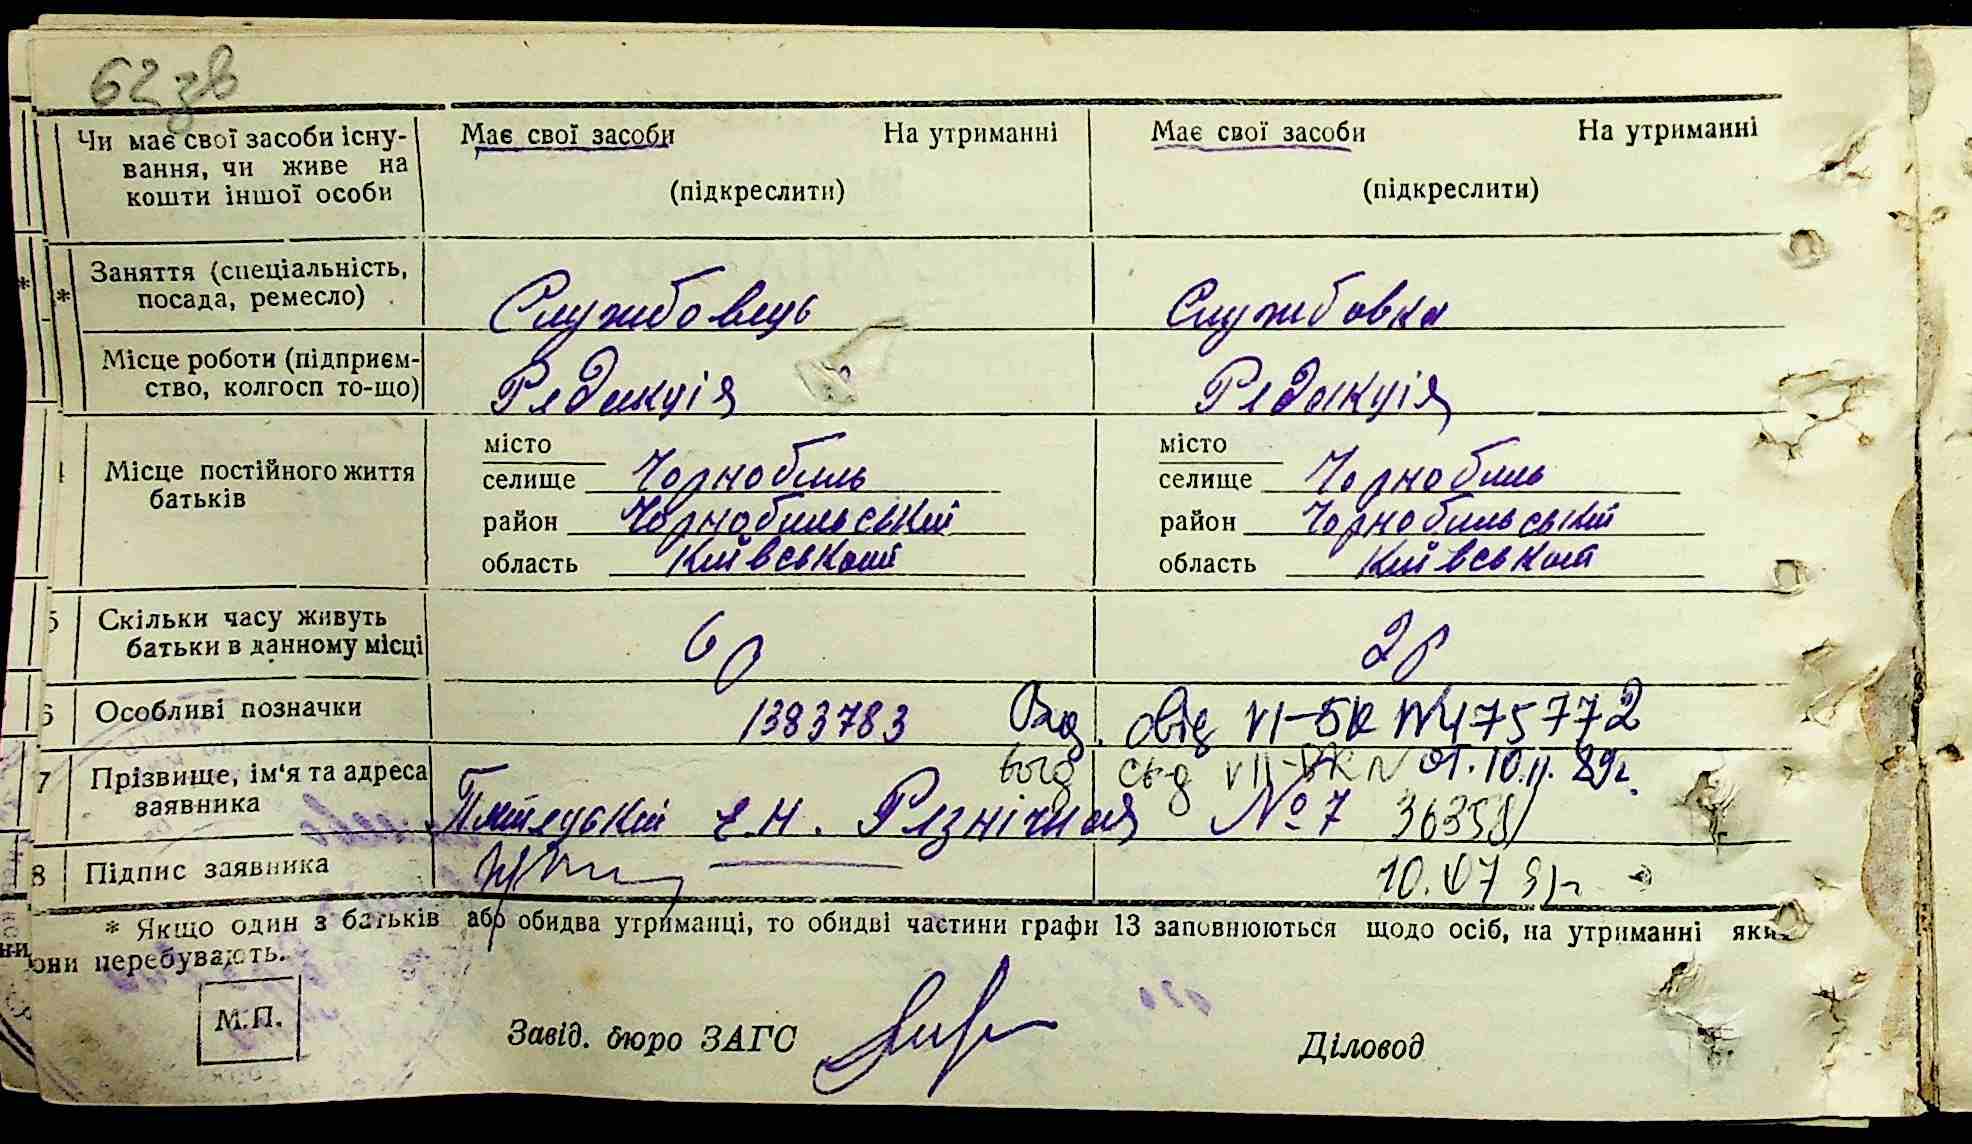 62 зв
Чи має свої засоби існу-
вання, чи живе на
кошти іншої особи
Має свої засоби На утриманні
(підкреслити)
Має свої засоби На утриманні
(підкреслити)
* * Заняття (спеціальність,
посада, ремесло)
Службовець
Службовка
Місце роботи (підприєм-
ство, колгосп то-що)
Редакція
Редакція
4 Місце постійного життя
батьків
місто
селище Чорнобиль
район Чорнобильський
область Київської
місто
селище Чорнобиль
район Чорнобильський
область Київської
5 Скільки часу живуть
батьки в данному місці
6 р
2 р
6 Особливі позначки
1383783
свід VI-БК №475772
7 Прізвище, ім'я та адреса
заявника
от. 10.11. 89г.
Є.Н. Рєзнічная №7 36358
8 Підпис заявника
10.07
* Якщо один з батьків або обидва утриманці, то обидві частини графи 13 заповнюються щодо осіб, на утриманні яких
они перебувають.
М.П.
Завід. бюро ЗАГС
Діловод